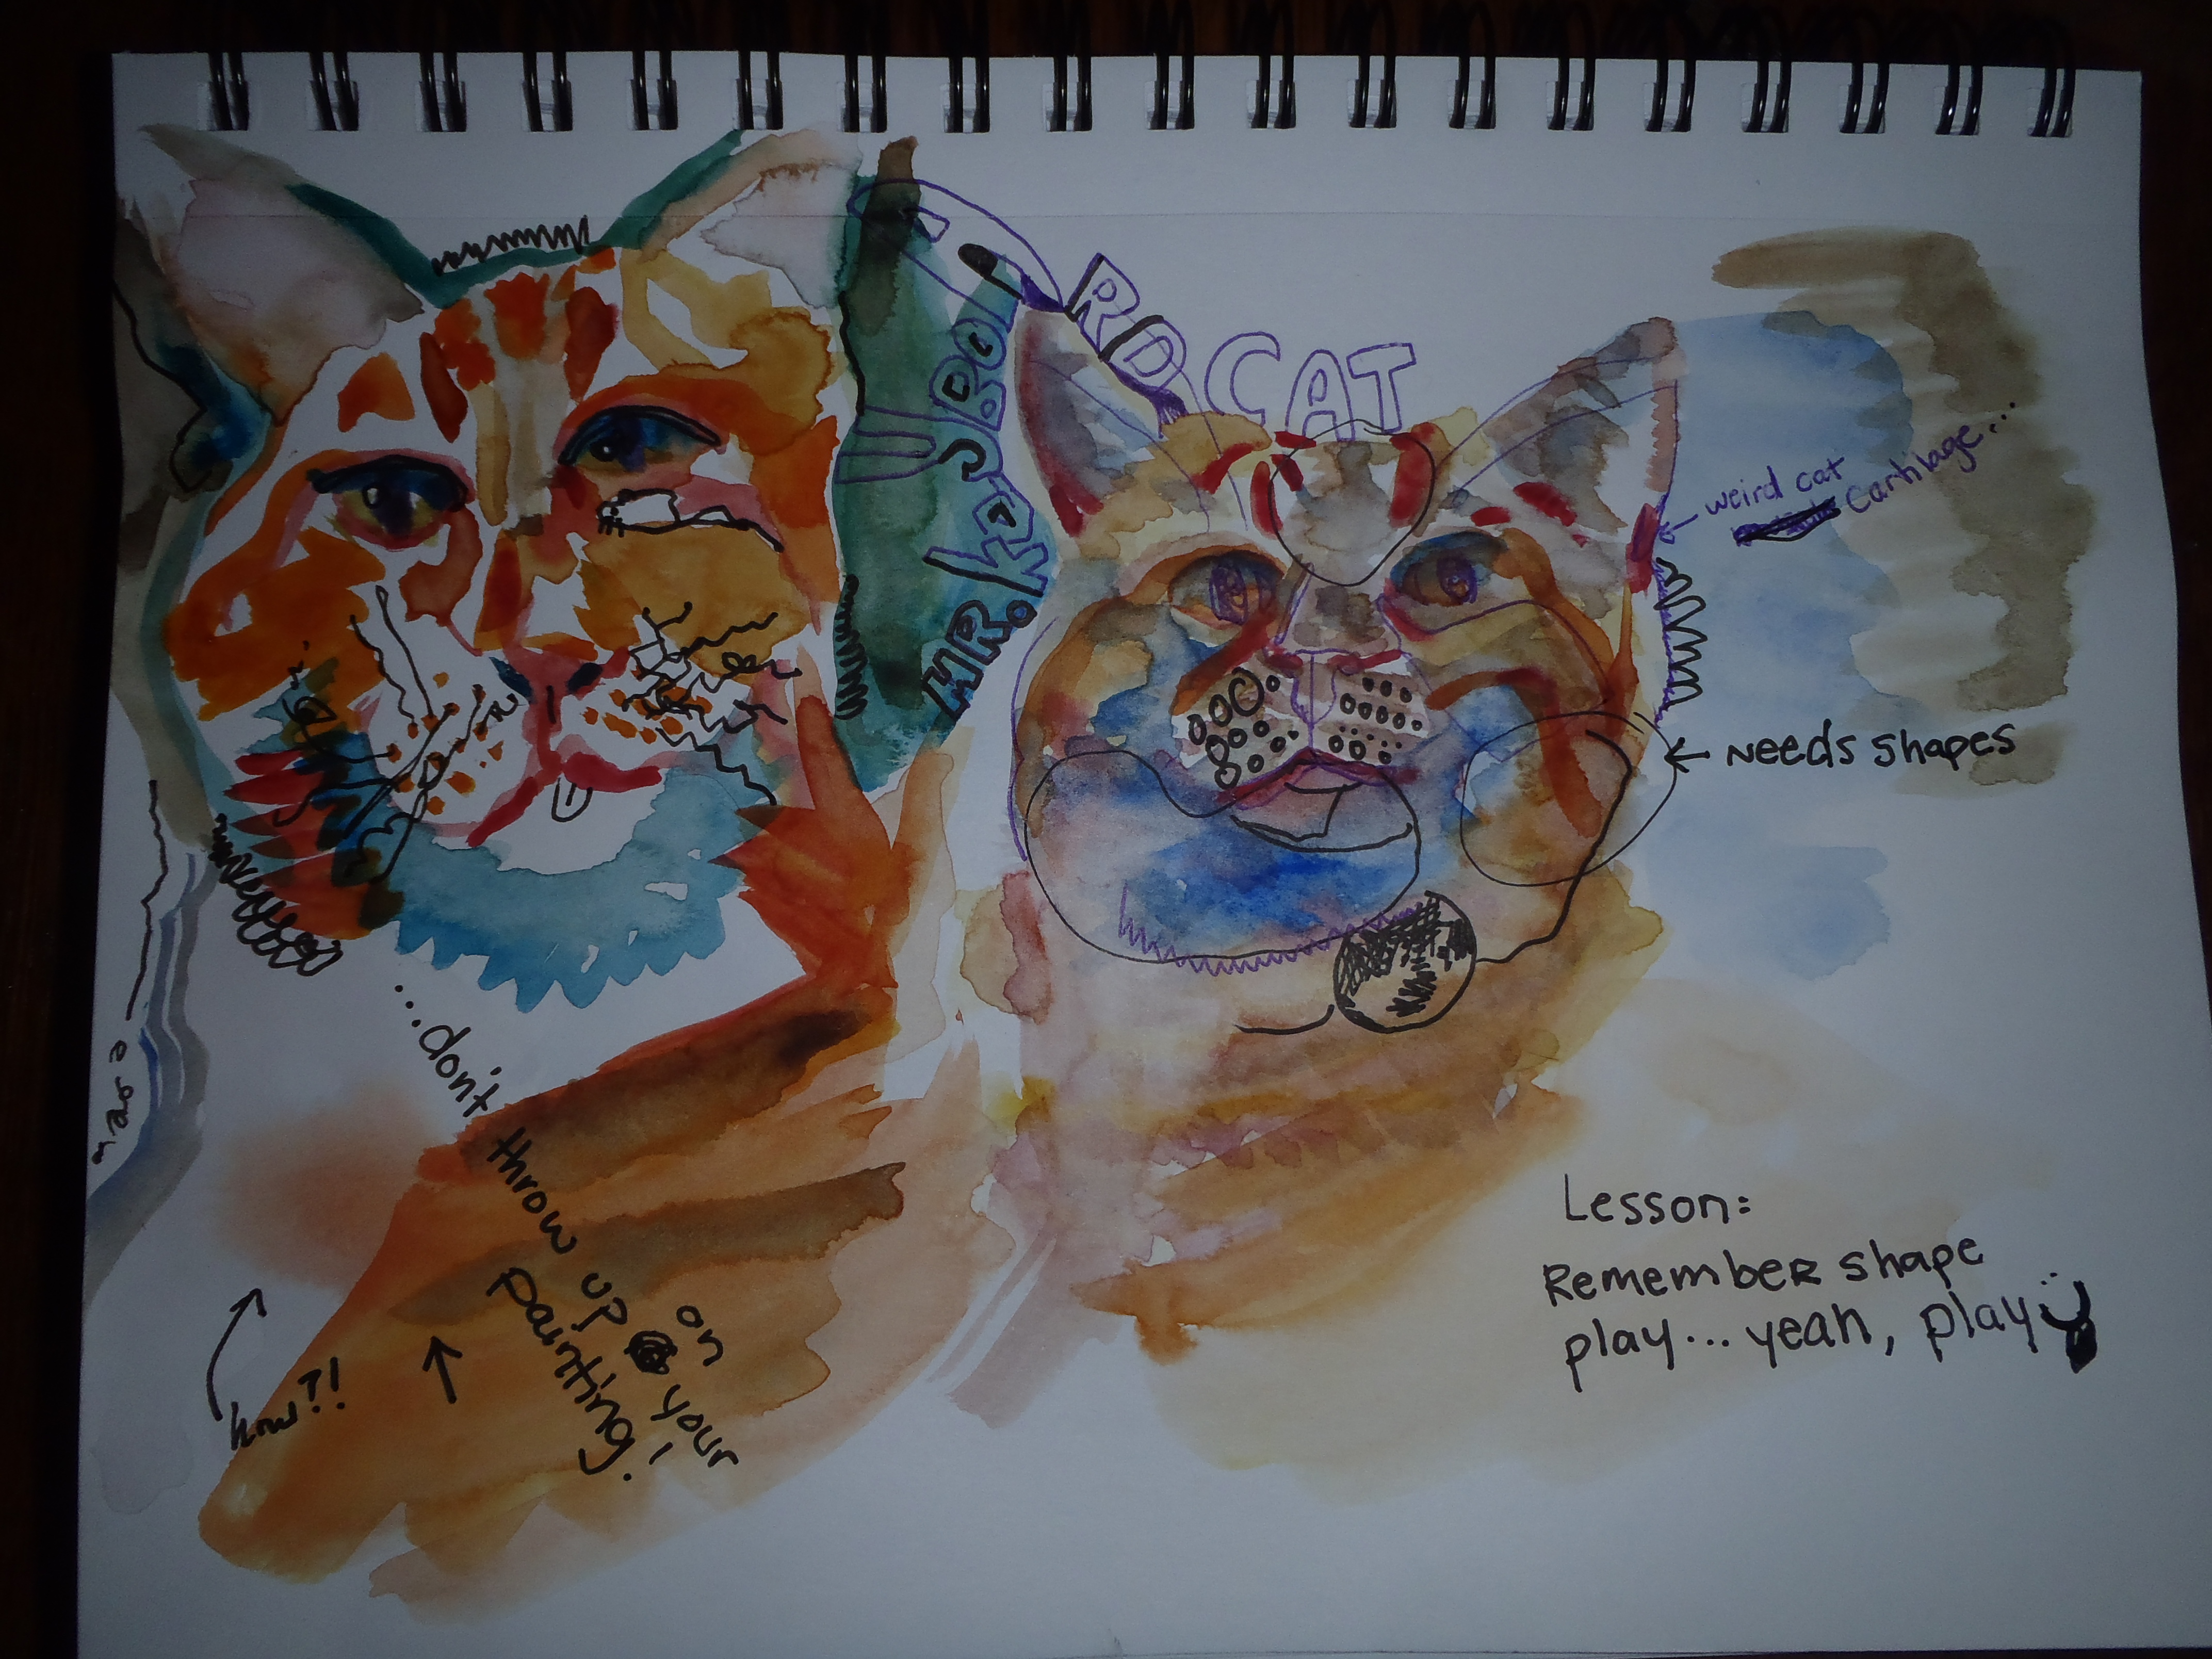 MR.
CAT
weird cat
cartilage...
← Needs shapes
...don't throw up
on your
painting.
how?!
Lesson:
Remember shape
play... yeah, play